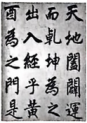 天地闔闢運
而乾坤為之
出入經乎黃
酉為之門是